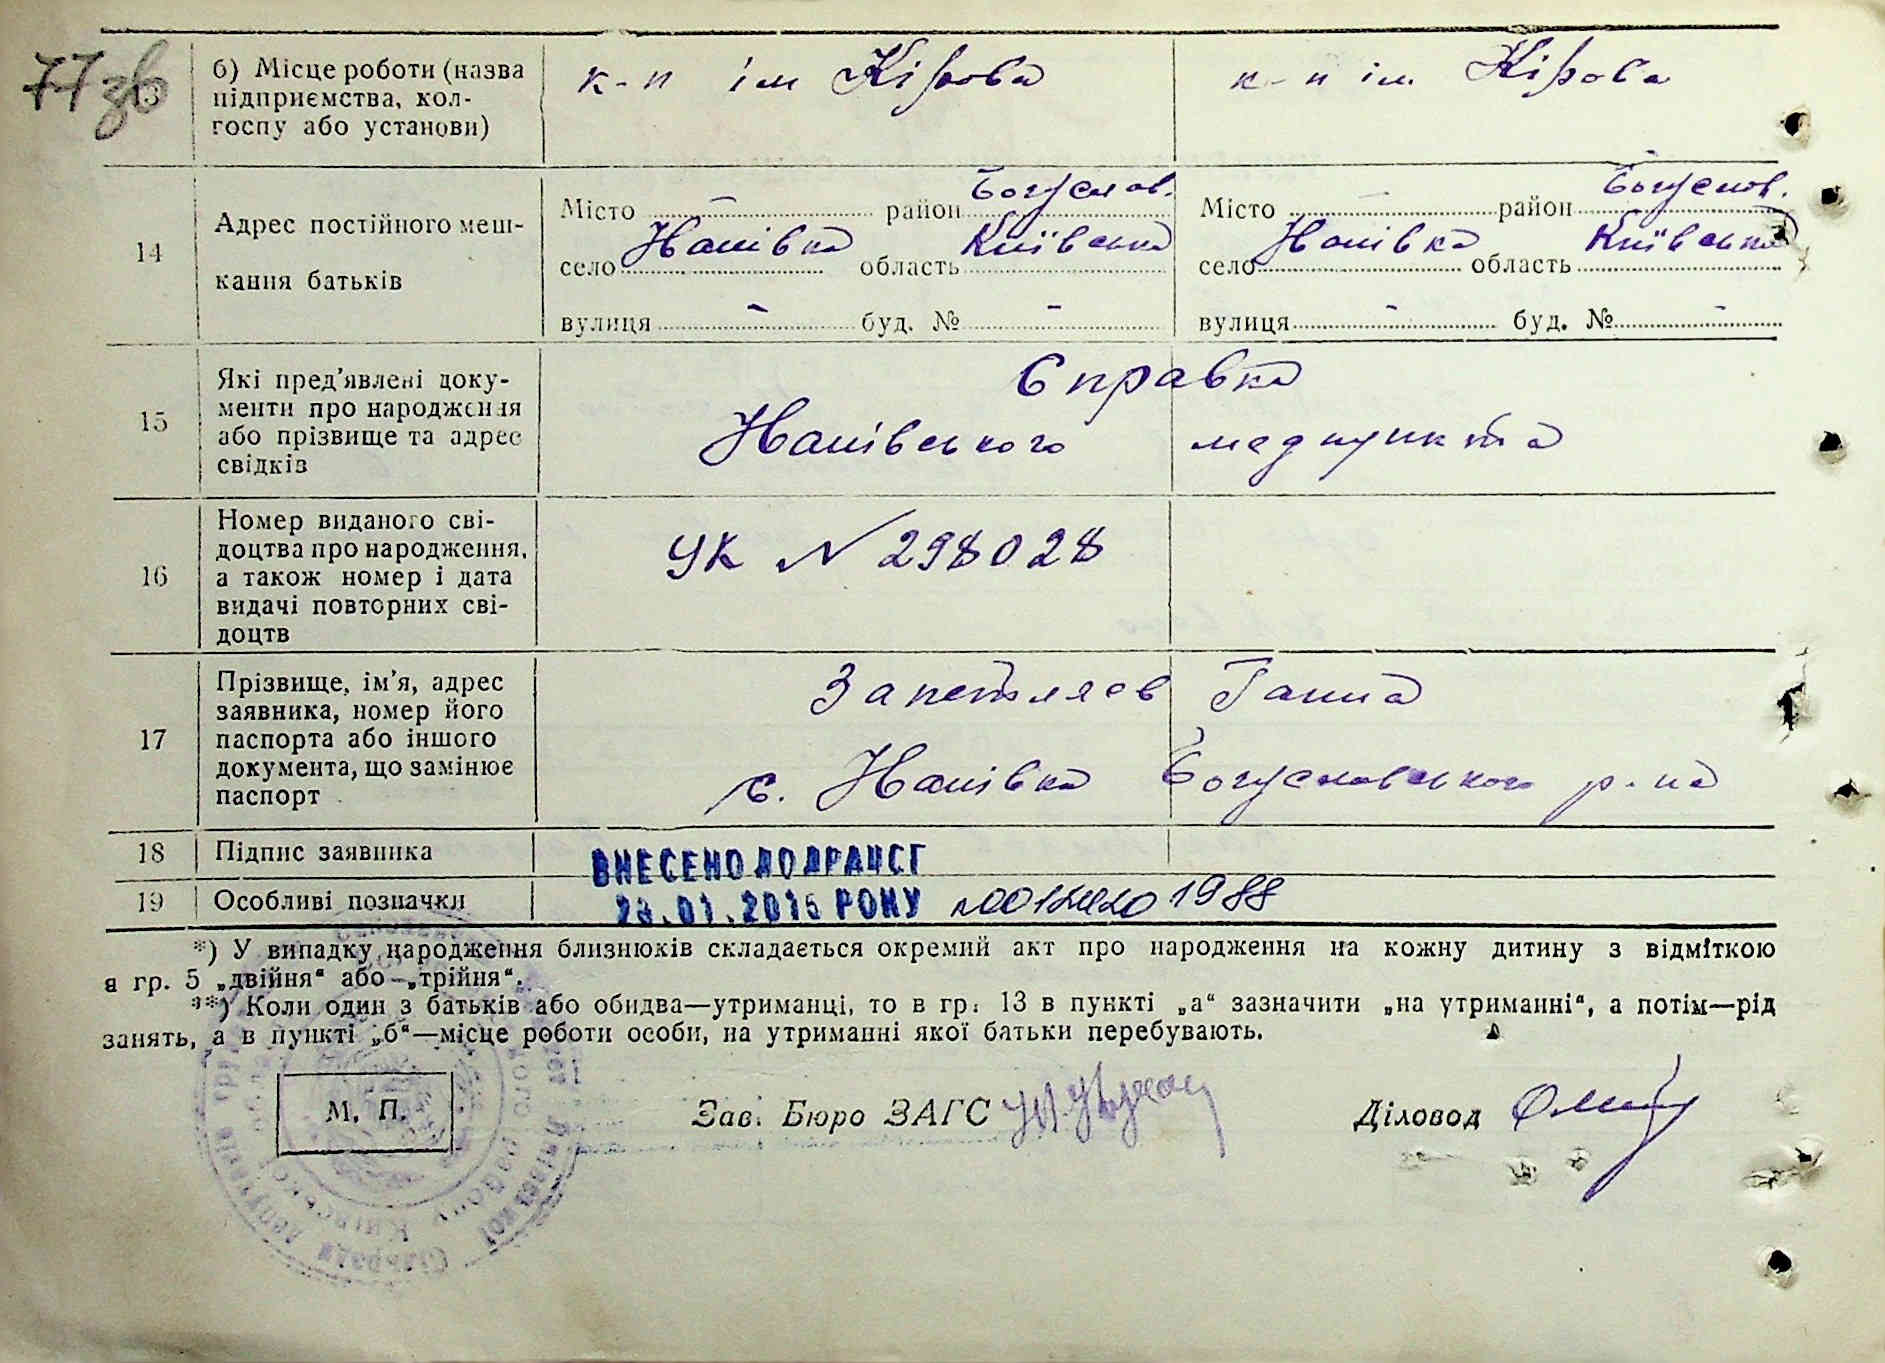 77 зв
б) Місце роботи (назва підприємства, колгоспу або установи)
к-п ім Кірова
к-п ім. Кірова
14
Адрес постійного мешкання батьків
Місто - район Богуслов.
село область Київська
вулиця - буд. № -
Місто - район Богуслов.
село область Київська
вулиця - буд. № -
15
Які пред'явлені документи про народження або прізвище та адрес свідків
Справка
медпункта
16
Номер виданого свідоцтва про народження, а також номер і дата видачі повторних свідоцтв
УК № 298028
17
Прізвище, ім'я, адрес заявника, номер його паспорта або іншого документа, що замінює паспорт
Ганна
с. Богуславського р-на
18
Підпис заявника
19
Особливі позначки
ВНЕСЕНО ДО ДРАЦСГ
РОКУ 1988
*) У випадку народження близнюків складається окремий акт про народження на кожну дитину з відміткою
в гр. 5 „двійня“ або „трійня“.
**) Коли один з батьків або обидва—утриманці, то в гр. 13 в пункті „а“ зазначити „на утриманні“, а потім—рід
занять, а в пункті „б“—місце роботи особи, на утриманні якої батьки перебувають.
М. П.
Зав. Бюро ЗАГС
Діловод